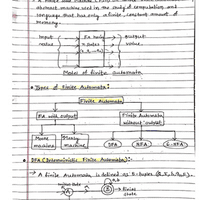 abstract machine used in the study of computation and
language that has only a finite, constant amount of
memory.
Input
value
FA having
n states
Output
value.
Model of finite Automata
• Types of Finite Automata:-
Finite Automata
FA with output
Finite Automata
without output
Moore
machine
Mealy
machine
DFA
NFA
ε-NFA
• DFA (Deterministic Finite Automata):-
→ A finite Automata is defined as 5-tuples
Initial State
A
B
a,b
→ Finite
State